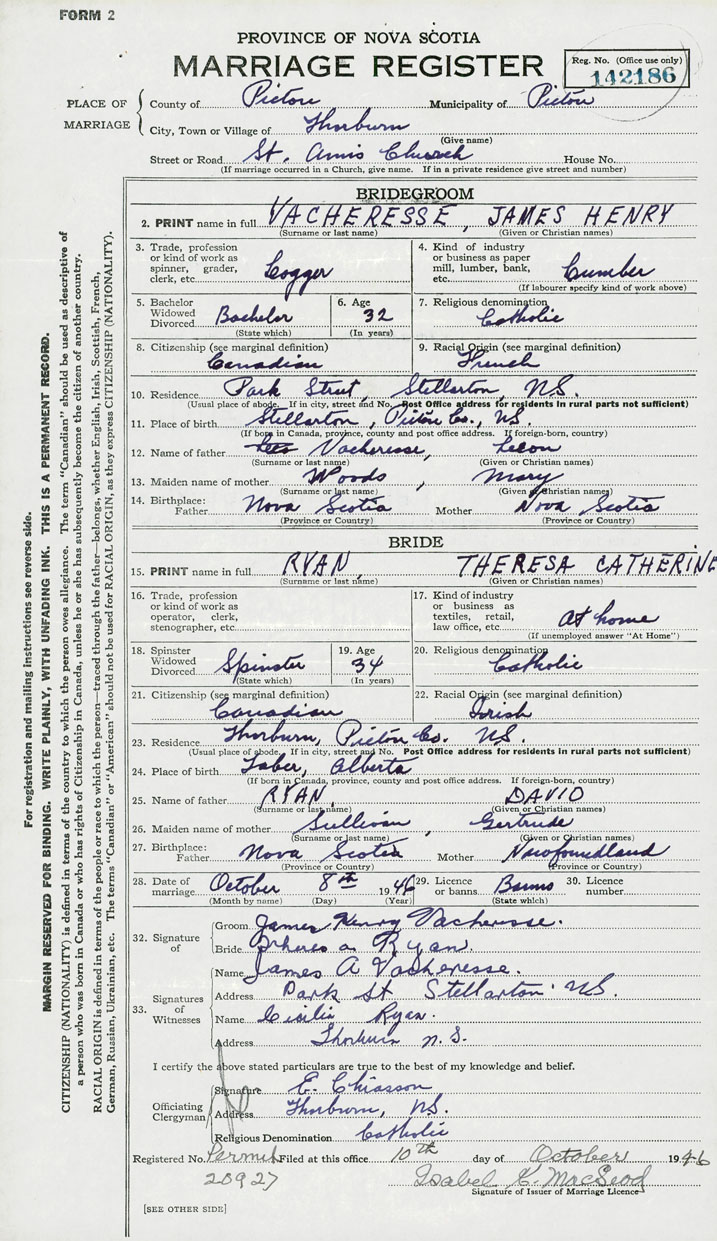 FORM 2
PROVINCE OF NOVA SCOTIA
MARRIAGE REGISTER
Reg. No. (Office use only)
142186
PLACE OF MARRIAGE
County of Pictou Municipality of Pictou
City, Town or Village of Thorburn
(Give name)
Street or Road St. Anns Church House No.
(If marriage occurred in a Church, give name. If in a private residence give street and number)
BRIDEGROOM
2. PRINT name in full VACHERESSE, JAMES HENRY
(Surname or last name) (Given or Christian names)
3. Trade, profession or kind of work as spinner, grader, clerk, etc. Logger
4. Kind of industry or business as paper mill, lumber, bank, etc. Lumber
(If labourer specify kind of work above)
5. Bachelor Widowed Divorced Bachelor
(State which)
6. Age 32
(In years)
7. Religious denomination Catholic
8. Citizenship (see marginal definition) Canadian
9. Racial Origin (see marginal definition) French
10. Residence Park Street, Stellarton NS.
(Usual place of abode. If in city, street and No. Post Office address for residents in rural parts not sufficient)
11. Place of birth Stellarton, Pictou Co., NS.
(If born in Canada, province, county and post office address. If foreign-born, country)
12. Name of father Vacheresse, Leeon
(Surname or last name) (Given or Christian names)
13. Maiden name of mother Woods, Mary
(Surname or last name) (Given or Christian names)
14. Birthplace: Father Nova Scotia Mother Nova Scotia
(Province or Country) (Province or Country)
BRIDE
15. PRINT name in full RYAN, THERESA CATHERINE
(Surname or last name) (Given or Christian names)
16. Trade, profession or kind of work as operator, clerk, stenographer, etc.
17. Kind of industry or business as textiles, retail, law office, etc. At home
(If unemployed answer "At Home")
18. Spinster Widowed Divorced Spinster
(State which)
19. Age 34
(In years)
20. Religious denomination Catholic
21. Citizenship (see marginal definition) Canadian
22. Racial Origin (see marginal definition) Irish
23. Residence Thorburn, Pictou Co. NS.
(Usual place of abode. If in city, street and No. Post Office address for residents in rural parts not sufficient)
24. Place of birth Taber, Alberta
(If born in Canada, province, county and post office address. If foreign-born, country)
25. Name of father RYAN, DAVID
(Surname or last name) (Given or Christian names)
26. Maiden name of mother Sullivan, Gertrude
(Surname or last name) (Given or Christian names)
27. Birthplace: Father Nova Scotia Mother Newfoundland
(Province or Country) (Province or Country)
28. Date of marriage October 8th 1946 29. Licence or banns Banns 30. Licence number
(Month by name) (Day) (Year) (State which)
32. Signature of
Groom James Henry Vacheresse.
Bride Theresa Ryan
33. Signatures of Witnesses
Name James A Vacheresse.
Address Park St Stellarton NS.
Name Cecilia Ryan.
Address Thorburn N.S.
I certify the above stated particulars are true to the best of my knowledge and belief.
Officiating Clergyman
Signature E. Chiasson
Address Thorburn, NS.
Religious Denomination Catholic
Registered No. Permit Filed at this office 10th day of October 1946
20927 Isabel C. MacLeod
Signature of Issuer of Marriage Licence
[SEE OTHER SIDE]
For registration and mailing instructions see reverse side.
MARGIN RESERVED FOR BINDING. WRITE PLAINLY, WITH UNFADING INK. THIS IS A PERMANENT RECORD.
CITIZENSHIP (NATIONALITY) is defined in terms of the country to which the person owes allegiance. The term "Canadian" should be used as descriptive of
a person who was born in Canada or who has rights of Citizenship in Canada, unless he or she has subsequently become the citizen of another country.
RACIAL ORIGIN is defined in terms of the people or race to which the person—traced through the father—belongs, whether English, Irish, Scottish, French,
German, Russian, Ukrainian, etc. The terms "Canadian" or "American" should not be used for RACIAL ORIGIN, as they express CITIZENSHIP (NATIONALITY).